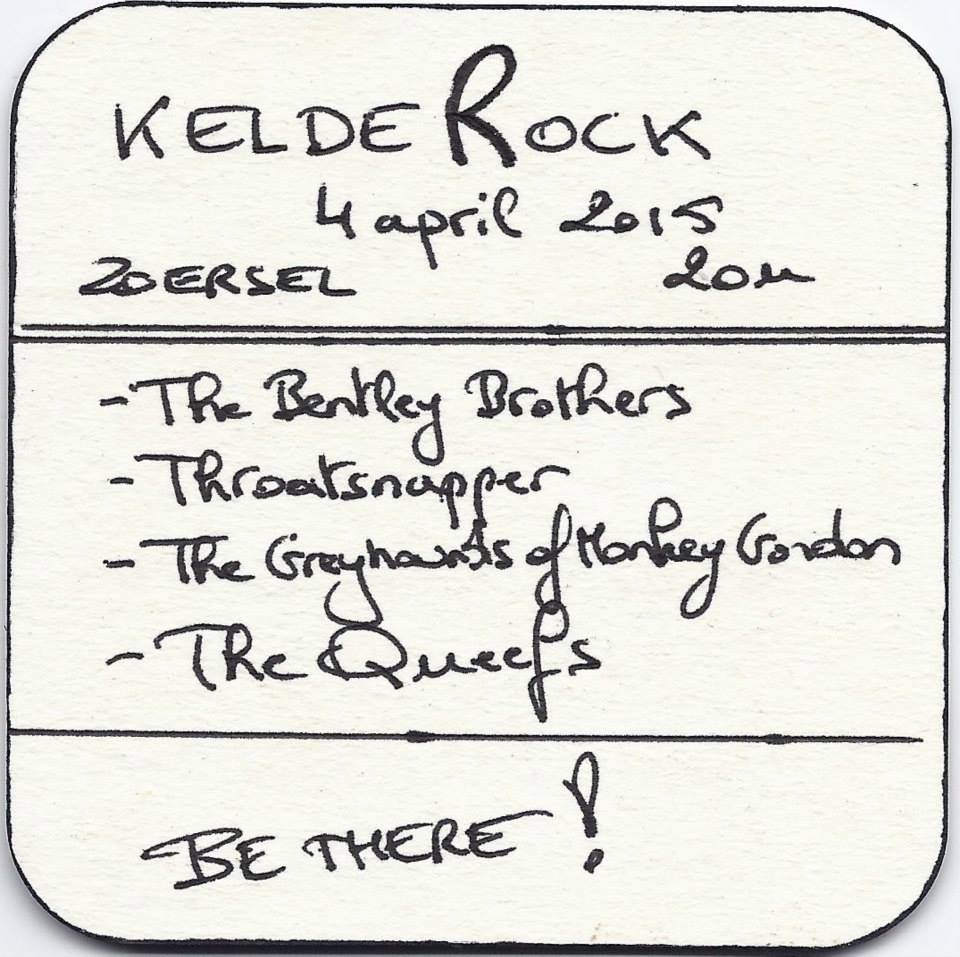 KELDEROCK
4 april 2015
ZOERSEL 20u
- The Bentley Brothers
- Throatsnapper
- The Greyhounds of Monkey Gordon
- The Queefs
BE THERE!